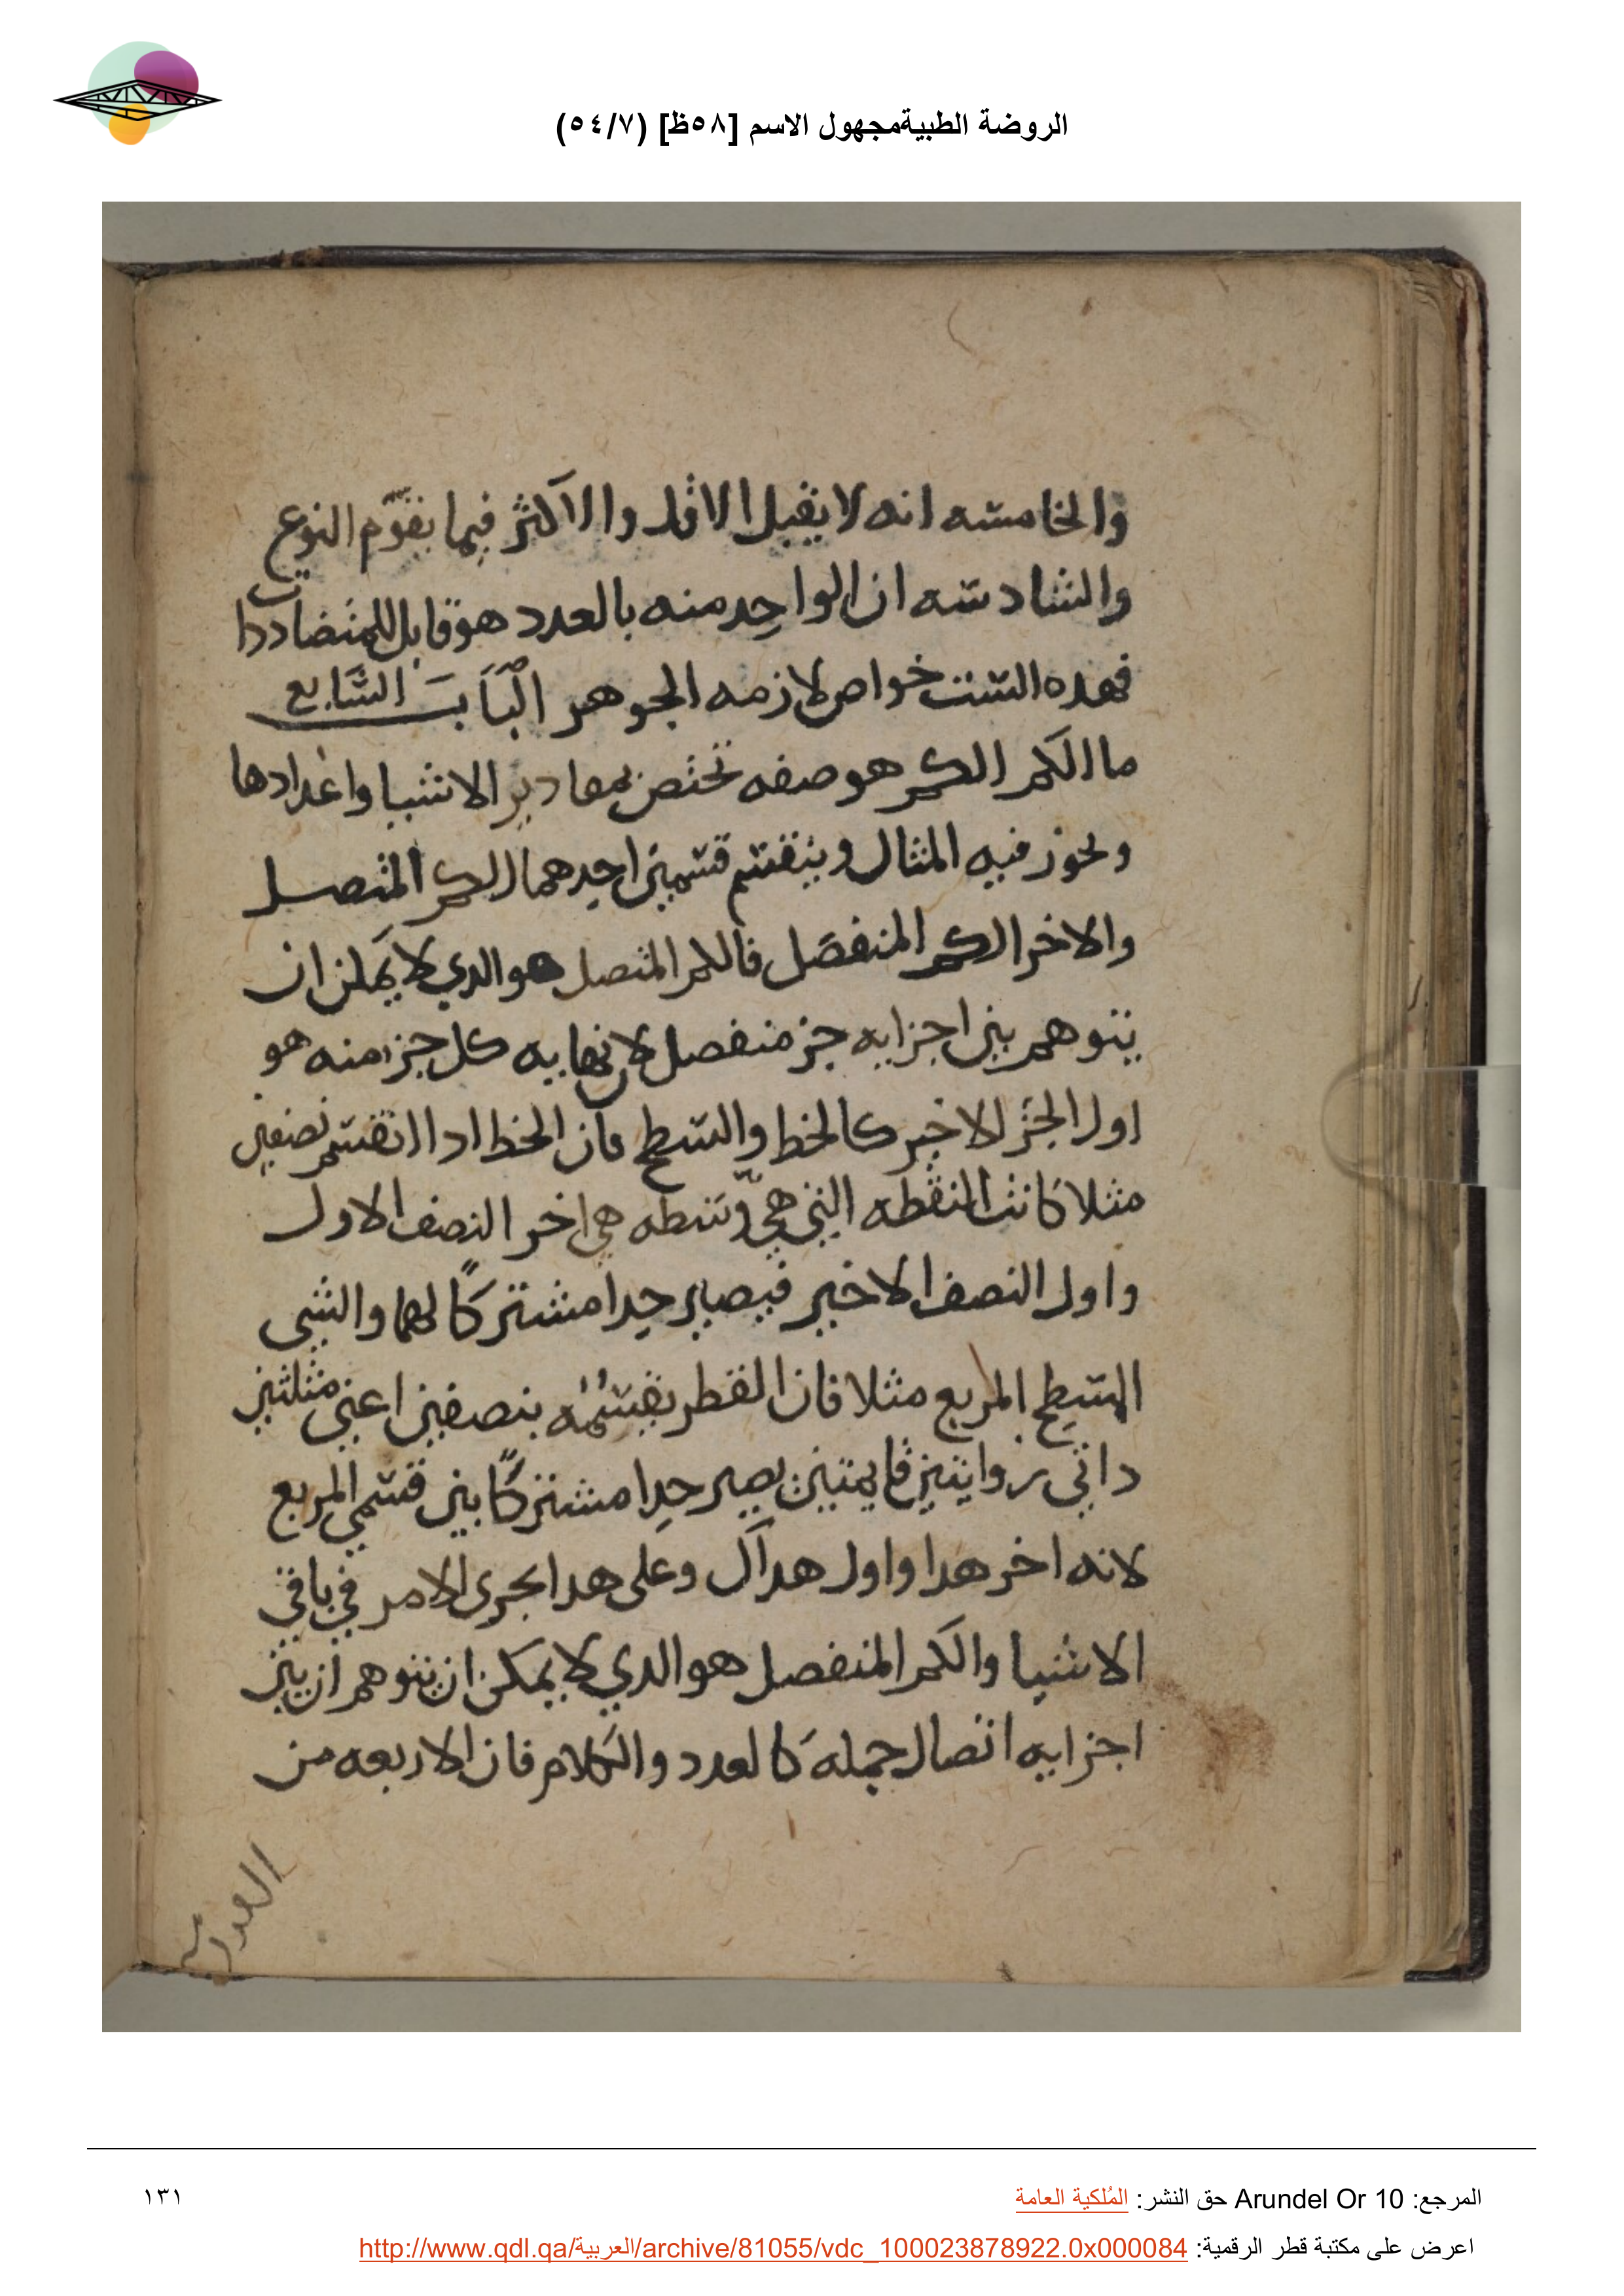 الروضة الطبيةمجهول الاسم [٥٨ظ] (٥٤/٧)
والخامسه انه لا يقبل الاقل والاكثر فيما يقوّم النوع
والسادسه ان الواحد منه بالعدد هو قابل للمتضاددات
فهده الست خواص لازمه الجوهر الباب السابع
ما الكم الكم هو صفه تختص بمقادير الاشيا واعدادها
ويحوز فيه المثال وينقسم قسمين احدهما الكم المتصل
والاخر الكم المنفصل فالكم المتصل هو الدي لا يمكن ان
يتوهم بين اجزايه جز منفصل لان نهايه كل جز منه هو
اول الجز الاخير كالخط والسطح فان الخط ادا انقسم نصفين
مثلا كانت النقطه التي هي وسطه هي اخر النصف الاول
واول النصف الاخير فيصير حدا مشتركًا لهما والشي
السطح المربع مثلا فان القطر يقسمه بنصفين اعني مثلثين
داتي زوايتين قايمتين يصير حدا مشتركًا بين قسمي المربع
لانه اخر هدا واول هداك وعلى هدا يجري الامر في باقي
الاشيا والكم المنفصل هو الدي لا يمكن ان يتوهم ان بين
اجزايه اتصال جمله كالعدد والكلام فان الاربعه من
المرجع: Arundel Or 10 حق النشر: المُلكية العامة
١٣١
اعرض على مكتبة قطر الرقمية: http://www.qdl.qa/العربية/archive/81055/vdc_100023878922.0x000084